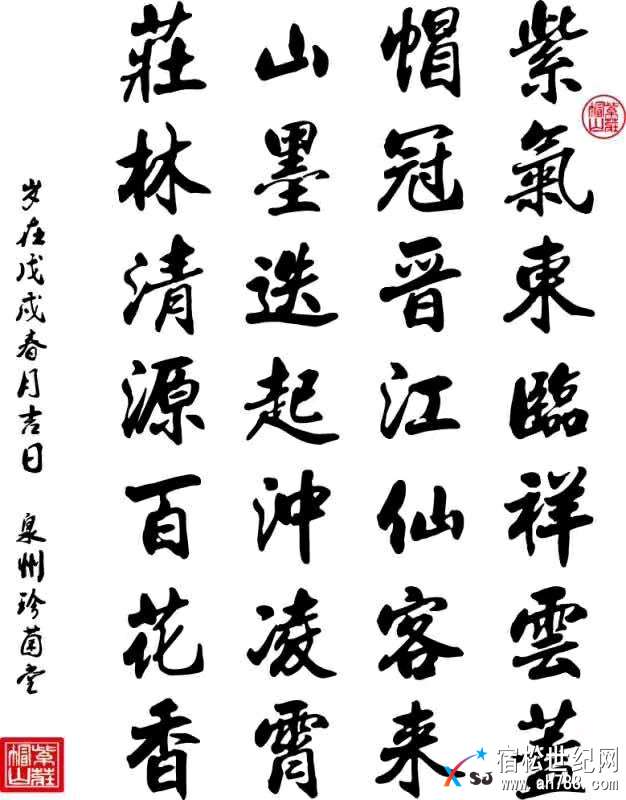 紫氣東臨祥雲蓋
帽冠晋江仙客来
山墨迭起沖凌霄
莊林清源百花香
岁在戊戌春月吉日 泉州珍菌堂
紫莊帽山
紫莊帽山
宿松世纪网
XSJ
www.ah788.com